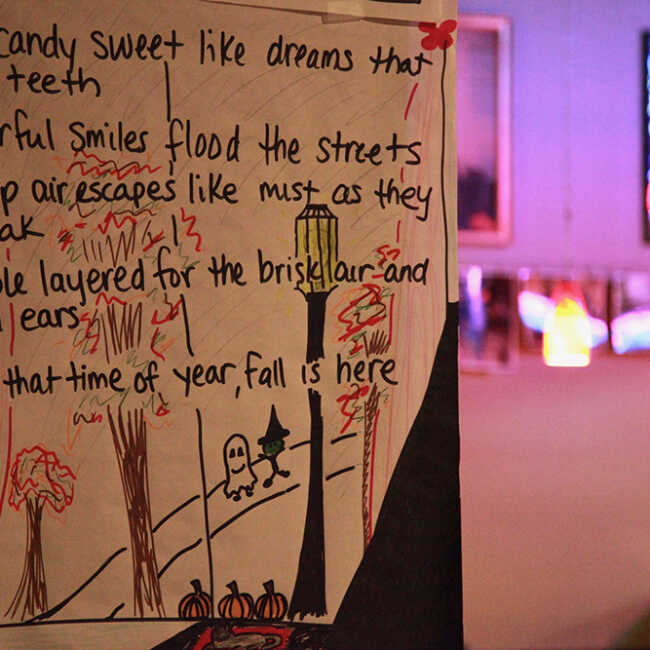 candy sweet like dreams that
teeth
rful Smiles flood the streets
p air escapes like mist as they
ak
le layered for the brisk air and
ears
that time of year, fall is here